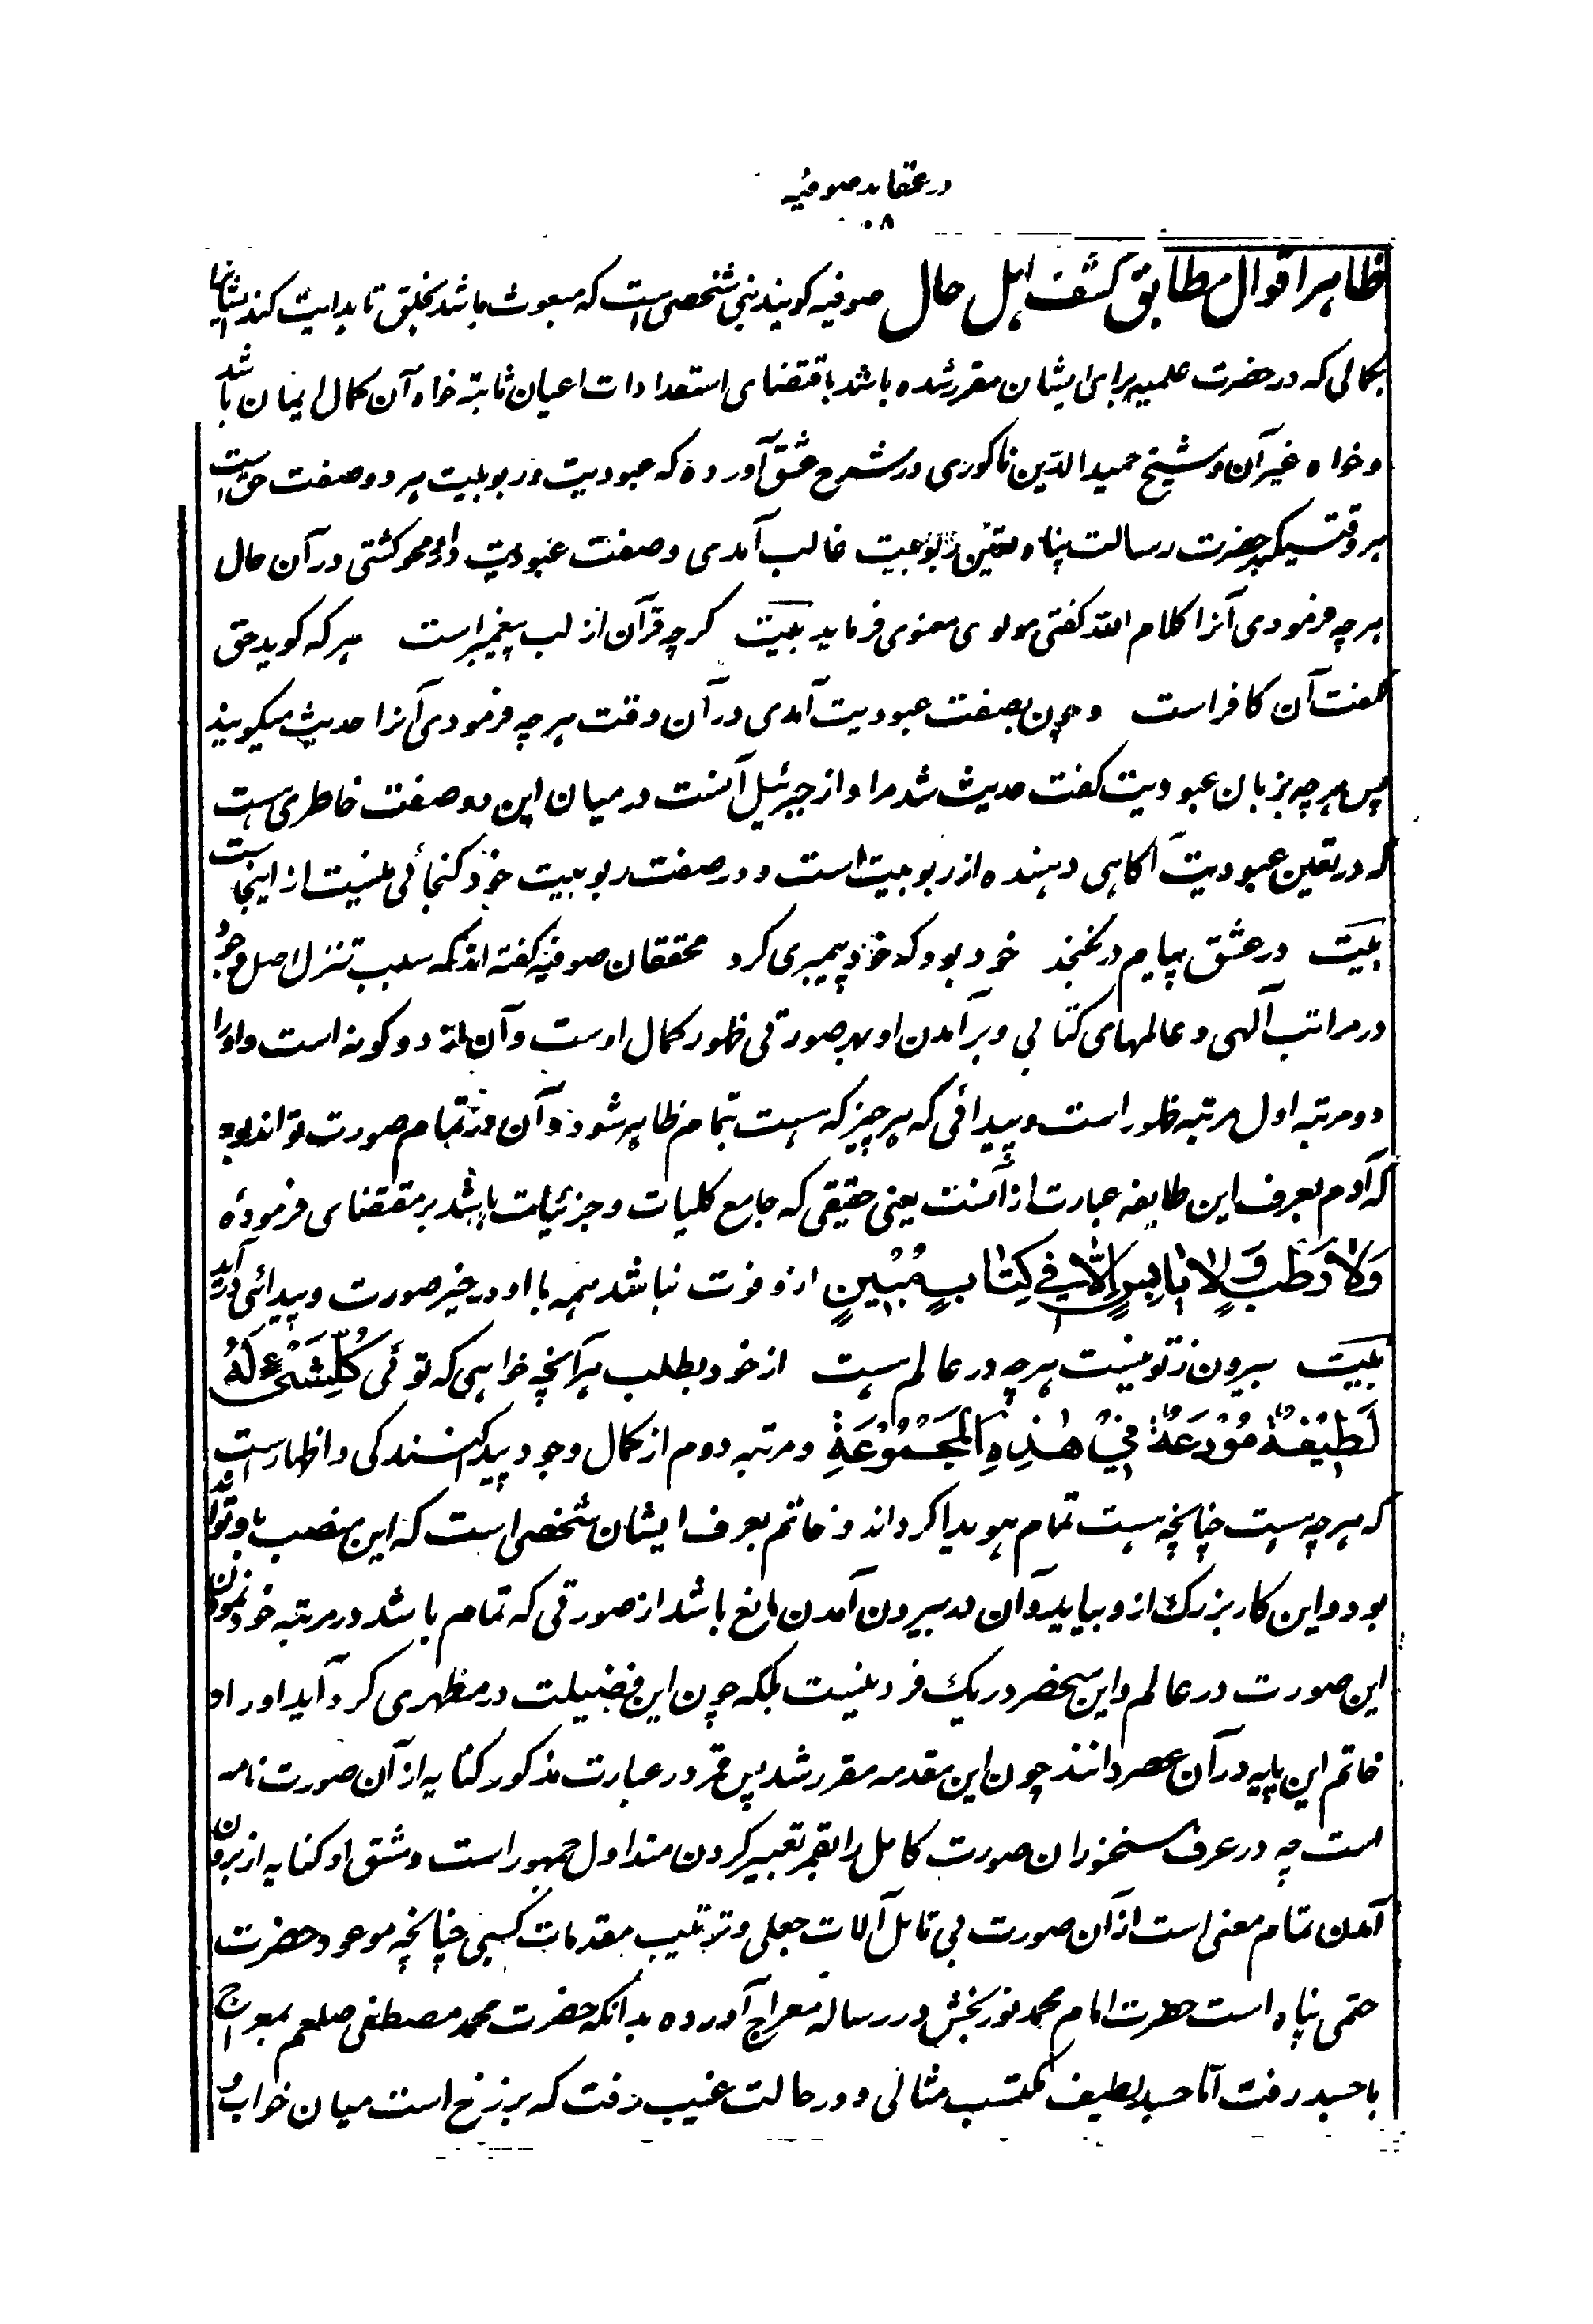 در عقاید صوفیه
۰۸
ظاهر اقوال مطابق کشف اهل حال صوفیه کویند نبی شخصی است که مبعوث باشد بخلق تا هدایت کند ایشانرا
بکمالی که در حضرت علمیه برای ایشان مقرر شده باشد باقتضای استعدادات اعیان ثابته خواه آن کمال ایمان باشد
و خواه غیر آن و شیخ حمیدالدین ناکوری در شرح عشق آورده که عبودیت و ربوبیت هر دو صفت حق است
هر وقتیکه بر حضرت رسالت پناه تعین ربوبیت غالب آمدی و صفت عبودیت دادو محو کشتی در آن حال
هر چه فرمودی آنرا کلام الله کفتی مولوی معنوی فرماید بیت کرچه قرآن از لب پیغمبر است هر که کوید حق
نکفت آن کافر است و چون بصفت عبودیت آمدی در آن وقت هر چه فرمودی آنرا حدیث میکویند
پس هر چه بزبان عبودیت کفت حدیث شد مراد از جبرئیل آنست در میان این دو صفت خاطری هست
که در تعین عبودیت آکاهی دهنده از ربوبیت است و در صفت ربوبیت خود کنجائی نیست از اینجاست
بیت در عشق پیام در نکنجد خود بود که خود پیمبری کرد محققان صوفیه کفته اند که سبب تنزل اصل وجود
در مراتب آلهی و عالمهای کتابی و برآمدن او بهر صورتی ظهور کمال اوست و آن دو کونه است و او را
دو مرتبه اول مرتبه ظهور است و پیدائی که هر چیز که هست بتمام ظاهر شود و آن در تمام صورت تواند بود
که آدم بعرف این طایفه عبارت از آنست یعنی حقیقی که جامع کلیات و جزئیات باشد بر مقتضای فرموده
وَلَا رَطْبٍ وَلَا یَابِسٍ اِلَّا فِي کِتَابٍ مُبِیْنٍ ازو فوت نباشد همه با او در خیر صورت و پیدائی درآید
بیت بیرون ز تو نیست هر چه در عالم هست از خود بطلب هر آنچه خواهی که توئی کُلُّ شَيْءٍ لَهُ
لَطِیْفَةٌ مُوْدَعَةٌ فِيْ هٰذِهِ الْمَجْمُوْعَةِ و مرتبه دوم از کمال وجود پیدا کنندکی و اظهار است
که هر چه هست چنانچه هست تمام هویدا کرداند و خاتم بعرف ایشان شخصی است که این منصب باو تواند
بود و این کار بزرک ازو بیاید و آن در بیرون آمدن مانع باشد از صورتی که تمام باشد در مرتبه خود نمودن
این صورت در عالم و این منحصر در یک فرد نیست بلکه چون این فضیلت در مظهری کرد آید او را
خاتم این پایه در آن عصر دانند چون این مقدمه مقرر شد پس قمر در عبارت مذکور کنایه از آن صورت تامه
است چه در عرف سخنوران صورت کامل را بقمر تعبیر کردن متداول جمهور است و شق او کنایه از برون
آمدن تمام معنی است از آن صورت بی تامل آلات جعلی و ترتیب مقدمات کسبی چنانچه موعود حضرت
ختمی پناه است حضرت امام محمد نوربخش در رساله معراج آورده بدانکه حضرت محمد مصطفی صلعم بمعراج
با جسد رفت اما جسد لطیف مکتسب مثالی و در حالت غیب رفت که برزخ است میان خواب و